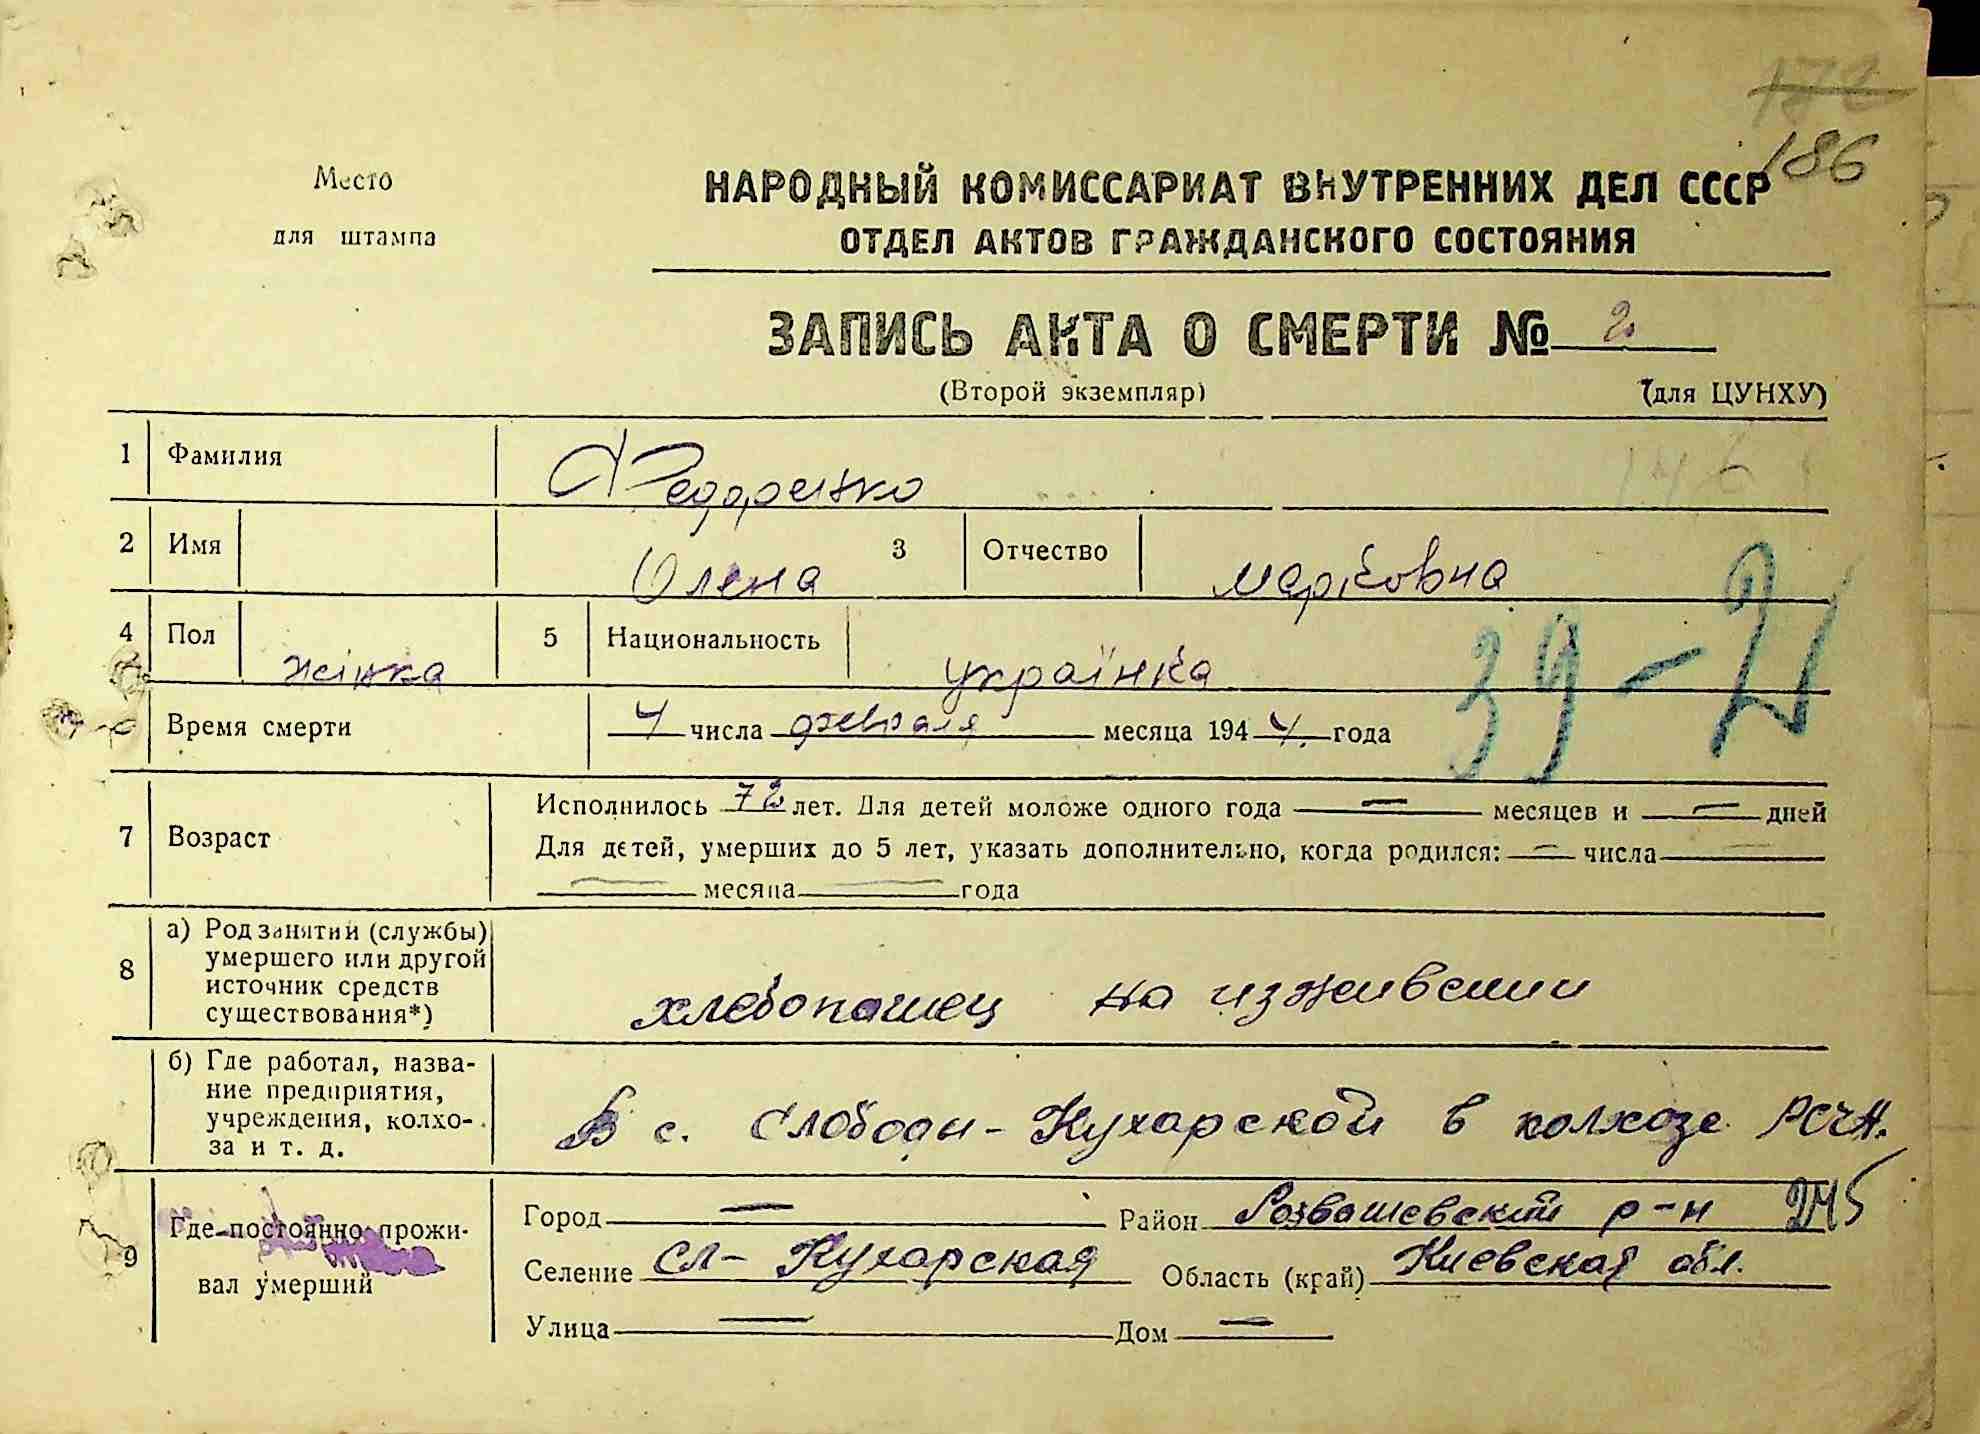 172
186
Место
для штампа
НАРОДНЫЙ КОМИССАРИАТ ВНУТРЕННИХ ДЕЛ СССР
ОТДЕЛ АКТОВ ГРАЖДАНСКОГО СОСТОЯНИЯ
ЗАПИСЬ АКТА О СМЕРТИ № 2
(Второй экземпляр) (для ЦУНХУ)
1 Фамилия Федоренко
2 Имя Олена 3 Отчество Марковна
4 Пол жінка 5 Национальность українка
39-21
Время смерти 4 числа февраля месяца 1944 года
7 Возраст Исполнилось 72 лет. Для детей моложе одного года — месяцев и — дней
Для детей, умерших до 5 лет, указать дополнительно, когда родился: — числа —
— месяца — года
8 а) Род занятий (службы)
умершего или другой
источник средств
существования*)
хлебопашец на изживении
б) Где работал, назва-
ние предприятия,
учреждения, колхо-
за и т. д.
В с. Слободы-Кухарской в колхозе РСЧА.
9 Где постоянно прожи-
вал умерший
Город — Район Розвашевский р-н 245
Селение Сл-Кухарская Область (край) Киевская обл.
Улица — Дом —